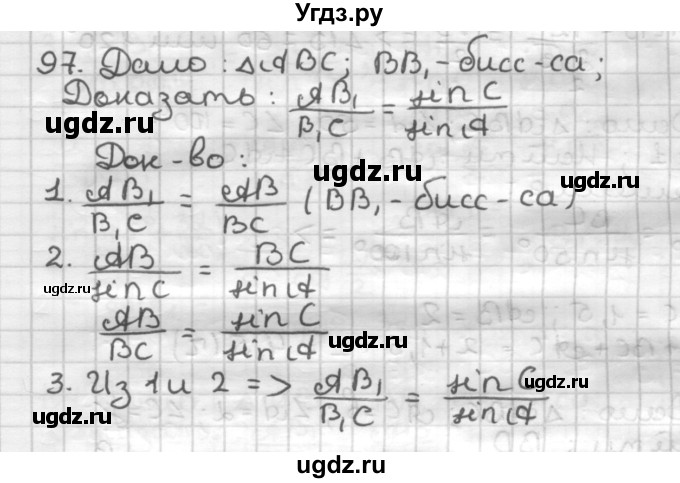 Угдз.ру
97. Дано: △ABC; BB₁ - бисс-са;
Доказать: AB₁/B₁C = sin C/sin A
ugdz.ru
ugdz.ru
Док-во:
ugdz.ru
1. AB₁/B₁C = AB/BC (BB₁ - бисс-са)
ugdz.ru
2. AB/sin C = BC/sin A
ugdz.ru
ugdz.ru
AB/BC = sin C/sin A
ugdz.ru
3. Из 1 и 2 => AB₁/B₁C = sin C/sin A
ugdz.ru
ugdz.ru
ugdz.ru